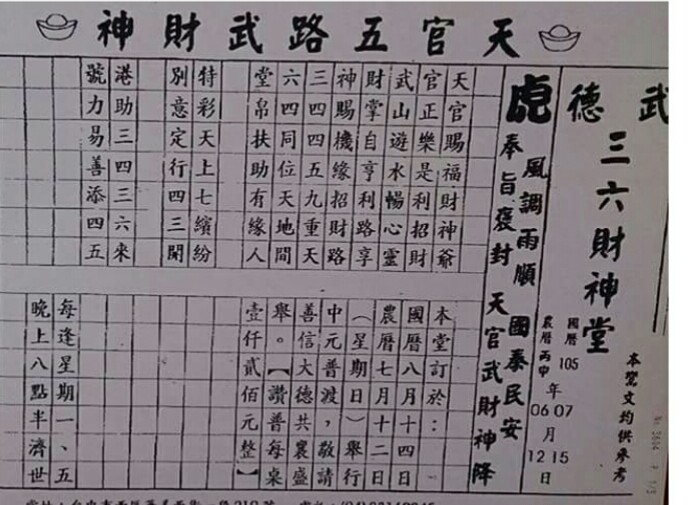 天官五路武財神
武德
三六財神堂
本鸞文均供參考
國曆 105 年 07 月 15 日
農曆丙申 年 06 月 12 日
虎
風調雨順 國泰民安
奉旨褒封 天官武財神降
天官賜福財神爺
官正樂是利招財
武山遊水暢心靈
財掌自亨利路享
神賜機緣招財路
三四四五九重天
六四同位天地間
堂帛扶助有緣人
特彩天上七繽紛
別意定行四三開
港助三四三六來
號力易善添四五
本堂訂於：
國曆八月十四日
農曆七月十二日
（星期日）舉行
中元普渡，敬請
善信大德共襄盛
舉。【讚普每桌
壹仟貳佰元整】
每逢星期一、五
晚上八點半濟世